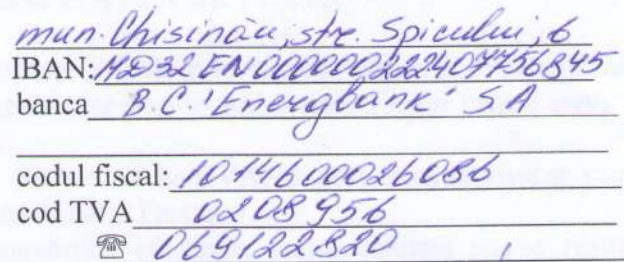 mun. Chisinău, str. Spicului, 6
IBAN: MD32EN000000222407756845
banca B.C. "Energbank" SA
codul fiscal: 1014600026086
cod TVA 0208956
☎ 069122820